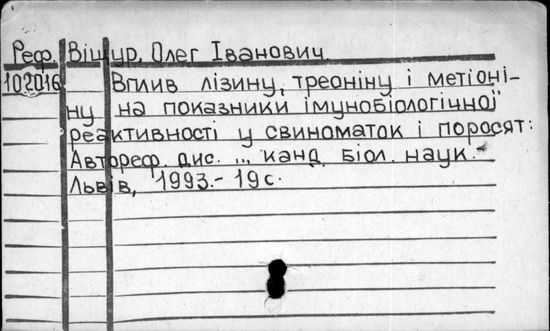 Реф. Віщур, Олег Іванович.
102016 Вплив лізину, треоніну і метіоні-
ну на показники імунобіологічної
реактивності у свиноматок і поросят:
Автореф. дис. ... канд. біол. наук.-
Львів, 1993.- 19с.